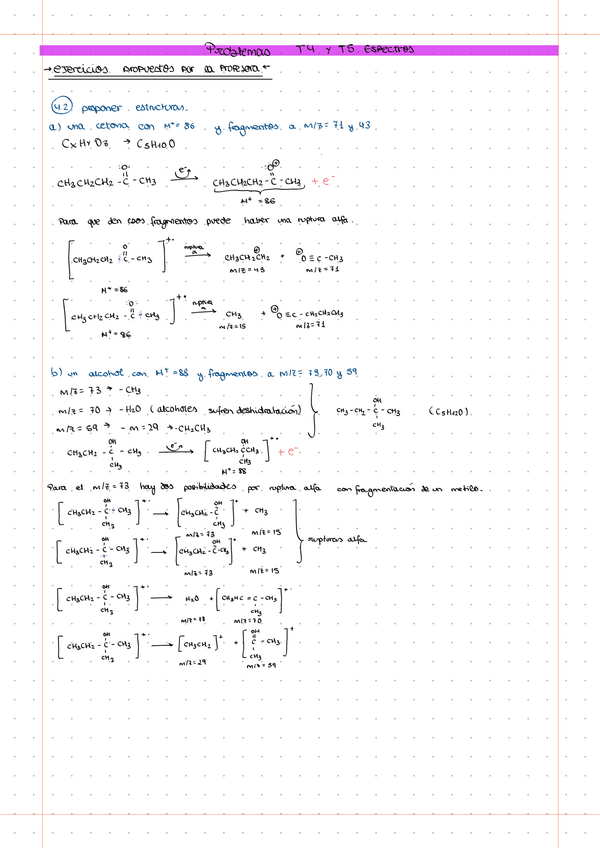 Problemas T4 y T5 ESPECTROS
→ ejercicios propuestos por la profesora ←
4.2 proponer estructuras.
a) una cetona con M⁺ = 86 y fragmentos a m/z = 71 y 43.
CxHyOz → C5H10O
CH3CH2CH2 - C - CH3 → CH3CH2CH2 - C - CH3 + e⁻
M⁺ = 86
Para que den esos fragmentos puede haber una ruptura alfa.
[CH3CH2CH2 - C - CH3]⁺· ruptura α → CH3CH2CH2 + O ≡ C - CH3
M⁺ = 86 m/z = 43 m/z = 71
[CH3CH2CH2 - C - CH3]⁺· ruptura α → CH3 + O ≡ C - CH2CH2CH3
M⁺ = 86 m/z = 15 m/z = 71
b) un alcohol con M⁺ = 88 y fragmentos a m/z = 73, 70 y 59
m/z = 73 → - CH3
m/z = 70 → - H2O (alcoholes sufren deshidratación)
CH3 - CH2 - C - CH3 (C5H12O).
OH
CH3
m/z = 59 → - m = 29 → - CH2CH3
OH
CH3CH2 - C - CH3 → [CH3CH2 C CH3]⁺· + e⁻
CH3
M⁺ = 88
Para el m/z = 73 hay dos posibilidades por ruptura alfa con fragmentación de un metilo.
[CH3CH2 - C - CH3]⁺· → [CH3CH2 - C]⁺ + CH3
m/z = 73 m/z = 15
rupturas alfa
[CH3CH2 - C - CH3]⁺· → [CH3CH2 - C - CH3]⁺ + CH3
m/z = 73 m/z = 15
[CH3CH2 - C - CH3]⁺· → H2O + [CH3HC = C - CH3]⁺·
m/z = 18 m/z = 70
[CH3CH2 - C - CH3]⁺· → [CH3CH2]⁺ + [C - CH3]⁺
m/z = 29 m/z = 59